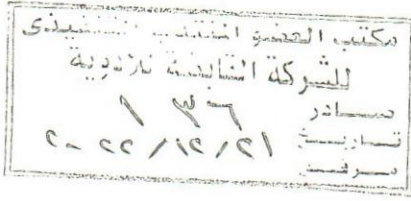 مكتب العضو المنتدب التنفيذى
للشركة القابضة للأدوية
صادر ١٣٦
تاريخ ٢٠٢٢/١٢/٢١
مرفق